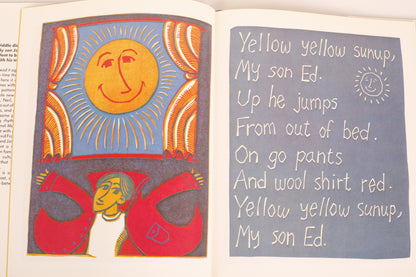 Yellow yellow sunup,
My son Ed.
Up he jumps
From out of bed.
On go pants
And wool shirt red.
Yellow yellow sunup,
My son Ed.